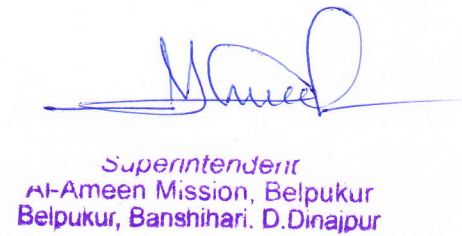 Superintendent
Al-Ameen Mission, Belpukur
Belpukur, Banshihari. D.Dinajpur